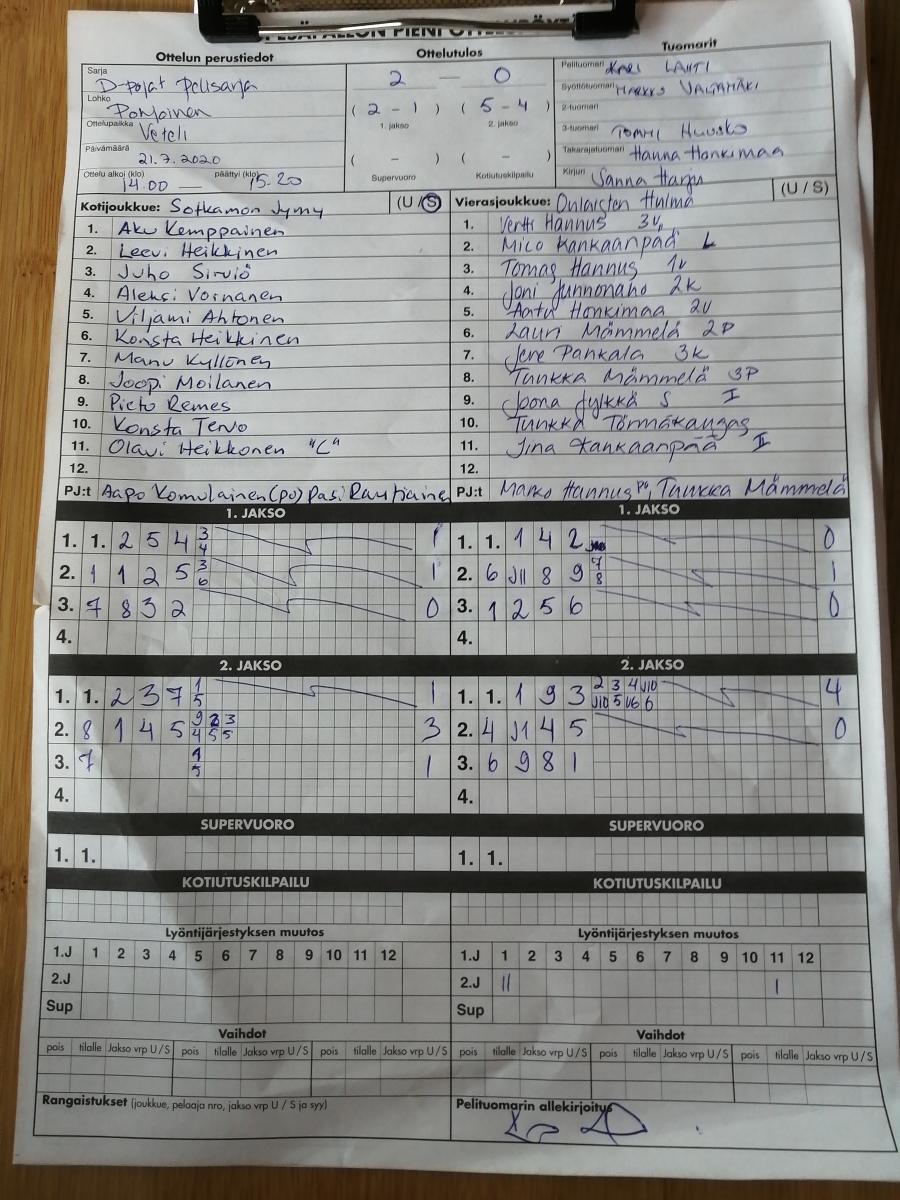 Ottelun perustiedot
Sarja
D-pojat Pelisarja
Lohko
Pohjoinen
Ottelupaikka Veteli
Päivämäärä
21.7.2020
Ottelu alkoi (klo) päättyi (klo)
14.00 — 15.20
Ottelutulos
2 — 0
( 2 - 1 ) ( 5 - 4 )
1. jakso 2. jakso
( - ) ( - )
Supervuoro Kotiutuskilpailu
Tuomarit
Pelituomari KARI LAHTI
Syöttötuomari MARKKO
2-tuomari
3-tuomari TOMMI Huusko
Takarajatuomari Hanna Honkimaa
Kirjuri Sanna Harju
Kotijoukkue: Sotkamon Jymy (U / S)
1. Aku Kemppainen
2. Leevi Heikkinen
3. Juho Sirviö
4. Aleksi Vornanen
5. Viljami Ahtonen
6. Konsta Heikkinen
7. Manu Kyllönen
8. Joopi Moilanen
9. Pietu Remes
10. Konsta Tervo
11. Olavi Heikkonen "L"
12.
PJ:t Aapo Komulainen (po) Pasi Rautiainen
Vierasjoukkue: Oulaisten Huima (U / S)
1. Vertti Hannus 3v
2. Mico Kankaanpää L
3. Tomas Hannus 1v
4. Joni Junnonaho 2k
5. Aatu Honkimaa 2v
6. Lauri Mämmelä 2P
7. Jere Pankala 3k
8. Tuukka Mämmelä 3P
9. Joona Jylkkä S I
10. Tuukka Törmäkangas
11. Jina Kankaanpää II
12.
PJ:t Marko Hannus PJ, Tuukka Mämmelä
1. JAKSO
1. 1. 2 5 4 3 1
4
2. 1 1 2 5 3 1
6
3. 7 8 3 2 0
4.
1. JAKSO
1. 1. 1 4 2 0
2. 6 J11 8 9 7 1
8
3. 1 2 5 6 0
4.
2. JAKSO
1. 1. 2 3 7 1 1
5
2. 8 1 4 5 9 2 3 3
4 5 5
3. 7 4 1
5
4.
2. JAKSO
1. 1. 1 9 3 2 3 4 J10 4
J10 5 J6 6
2. 4 J1 4 5 0
3. 6 9 8 1
4.
SUPERVUORO
1. 1.
SUPERVUORO
1. 1.
KOTIUTUSKILPAILU
KOTIUTUSKILPAILU
Lyöntijärjestyksen muutos
1.J 1 2 3 4 5 6 7 8 9 10 11 12
2.J
Sup
Lyöntijärjestyksen muutos
1.J 1 2 3 4 5 6 7 8 9 10 11 12
2.J 11 1
Sup
Vaihdot
pois tilalle Jakso vrp U / S pois tilalle Jakso vrp U / S pois tilalle Jakso vrp U / S
Vaihdot
pois tilalle Jakso vrp U / S pois tilalle Jakso vrp U / S pois tilalle Jakso vrp U / S
Rangaistukset (joukkue, pelaaja nro, jakso vrp U / S ja syy)
Pelituomarin allekirjoitus